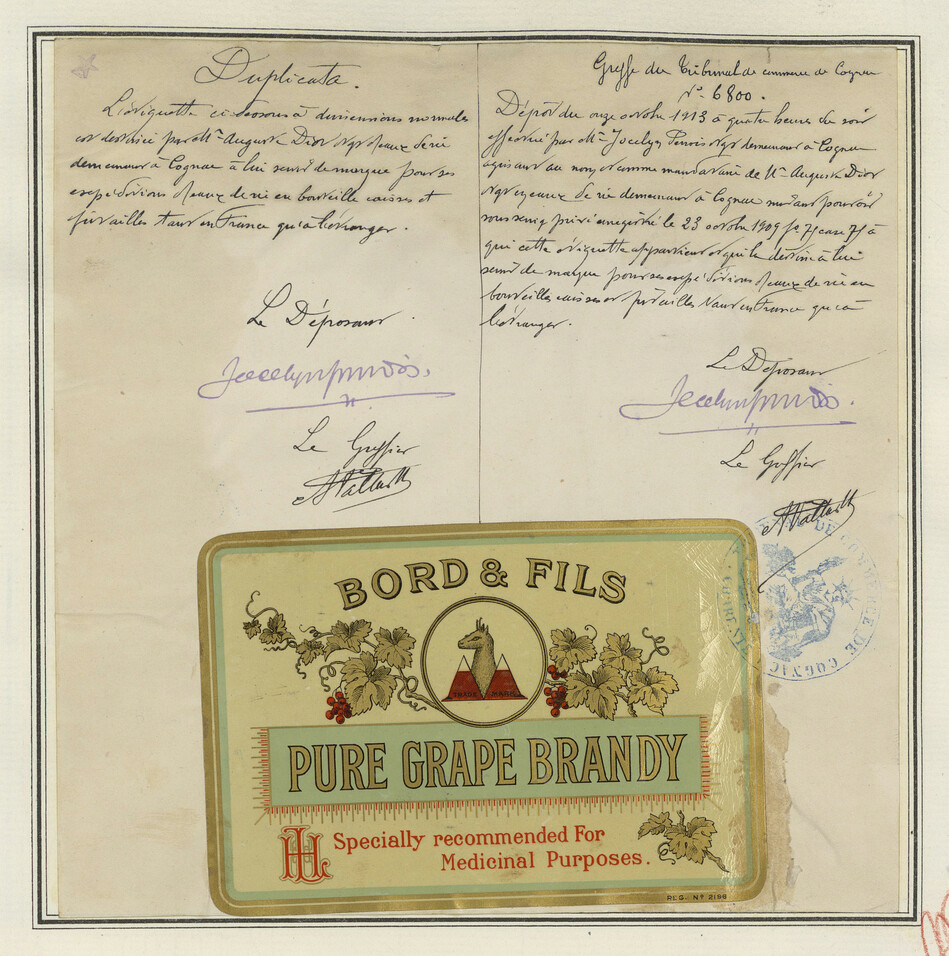 Duplicata.
L'étiquette ci dessous à dimensions normales
est destinée par Mr Auguste Dior Ngt d'eaux de vie
demeurant à Cognac à lui servir de marque pour ses
expéditions d'eaux de vie en bouteille caisses et
futailles tant en France qu'à l'étranger.
Le Déposant
Le Greffier
Greffe du Tribunal de commerce de Cognac
No 6800.
Dépôt du onze octobre 1913 à quatre heures du soir
effectué par Mr Jocelyn Ngt demeurant à Cognac
agissant au nom et comme mandataire de Mr Auguste Dior
Ngt en eaux de vie demeurant à Cognac suivant pouvoir
sous seing privé enregistré le 23 octobre 1909 fo 71 case 71 à
qui cette étiquette appartient et qui le destine à lui
servir de marque pour ses expéditions d'eaux de vie en
bouteilles caisses et futailles tant en France qu'à
l'étranger.
Le Déposant
Le Greffier
DE COMMERCE DE COGNAC
BORD & FILS
TRADE MARK
PURE GRAPE BRANDY
HL
Specially recommended For
Medicinal Purposes.
REG. No 2198